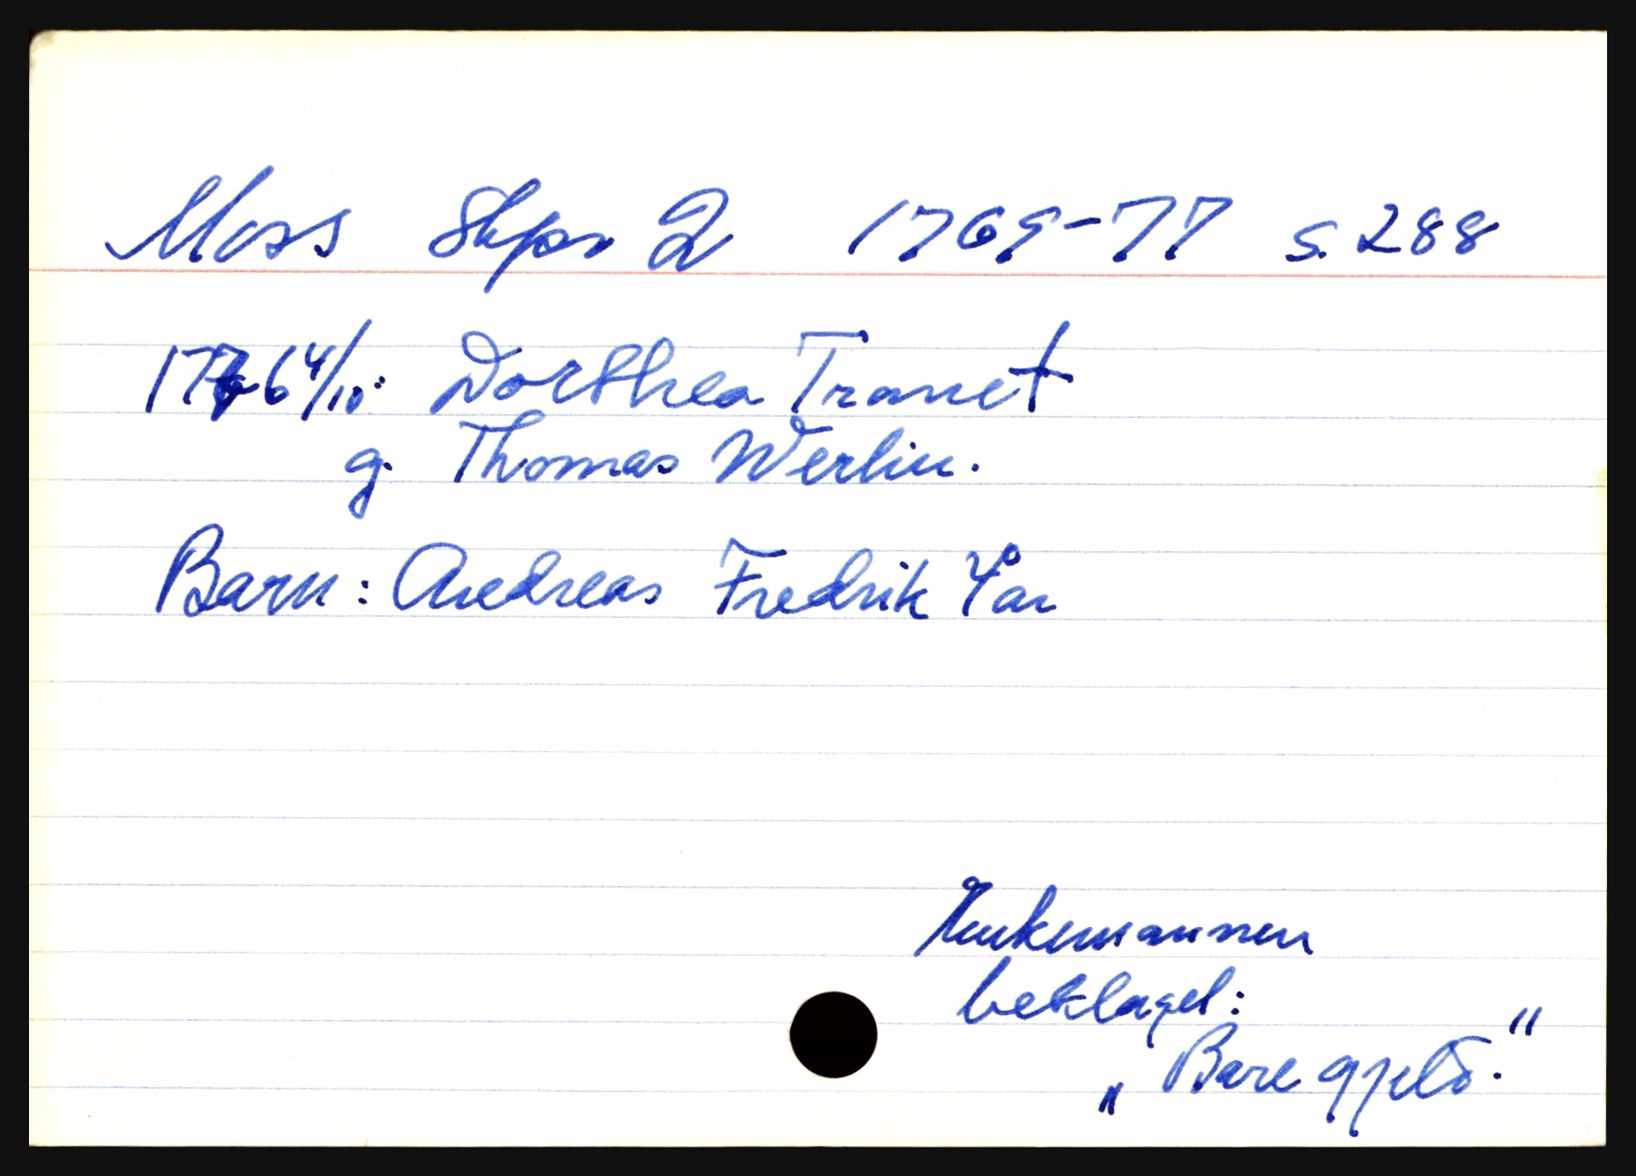 Moss Skpr 2 1769-77 s. 288
1776 4/10: Dorthea Tranet
g. Thomas Werlin.
Barn: Andreas Fredrik 4 år
Enkemannen
beklaget:
„Bare gjeld."